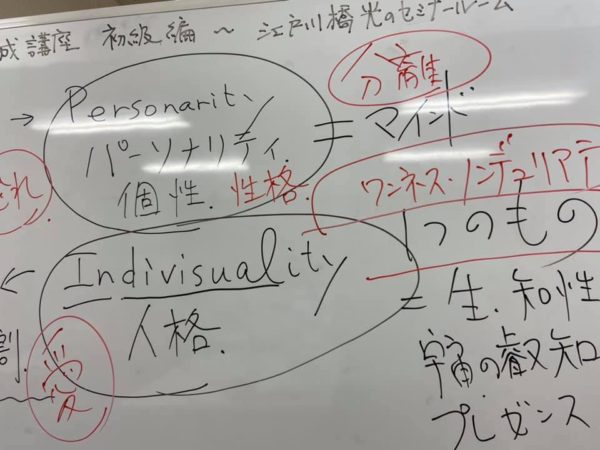 成講座 初級編 〜 江戸川橋光のセミナールーム
分離性
→ Personarity
パーソナリティ = マインド
個性. 性格.
れ
ワンネス・ノンデュリアテ
1つのもの
← Indivisuality
人格.
= 生. 知性
宇宙の叡知
プレゼンス
割.
愛